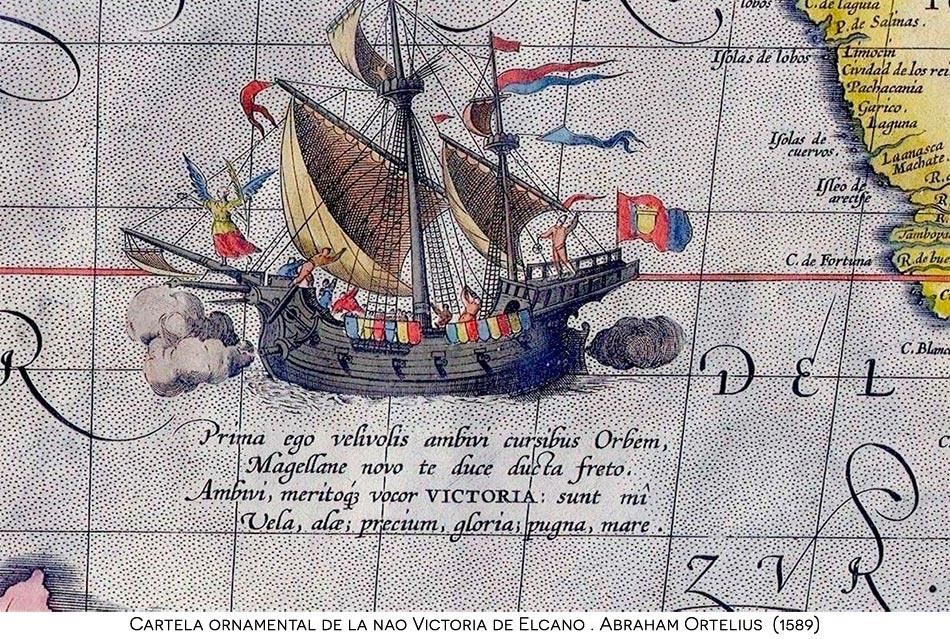 lobos
C. de laguia
P. de Salinas.
Iſolas de lobos
Limocin
Cividad de los rei
Pachacania
Garico.
Laguna
Iſolas de
cuervos.
Laanasca
Machate
Iſleo de
arecife
R.
R.
Tambopa
C. de Fortuna
R. de bue
C. Blanc
DEL
Prima ego velivolis ambivi curſibus Orbem,
Magellane novo te duce ducta freto.
Ambivi, meritoqȝ vocor VICTORIA: sunt mî
Vela, alæ; precium, gloria; pugna, mare.
ZVR.
Cartela ornamental de la nao Victoria de Elcano . Abraham Ortelius (1589)